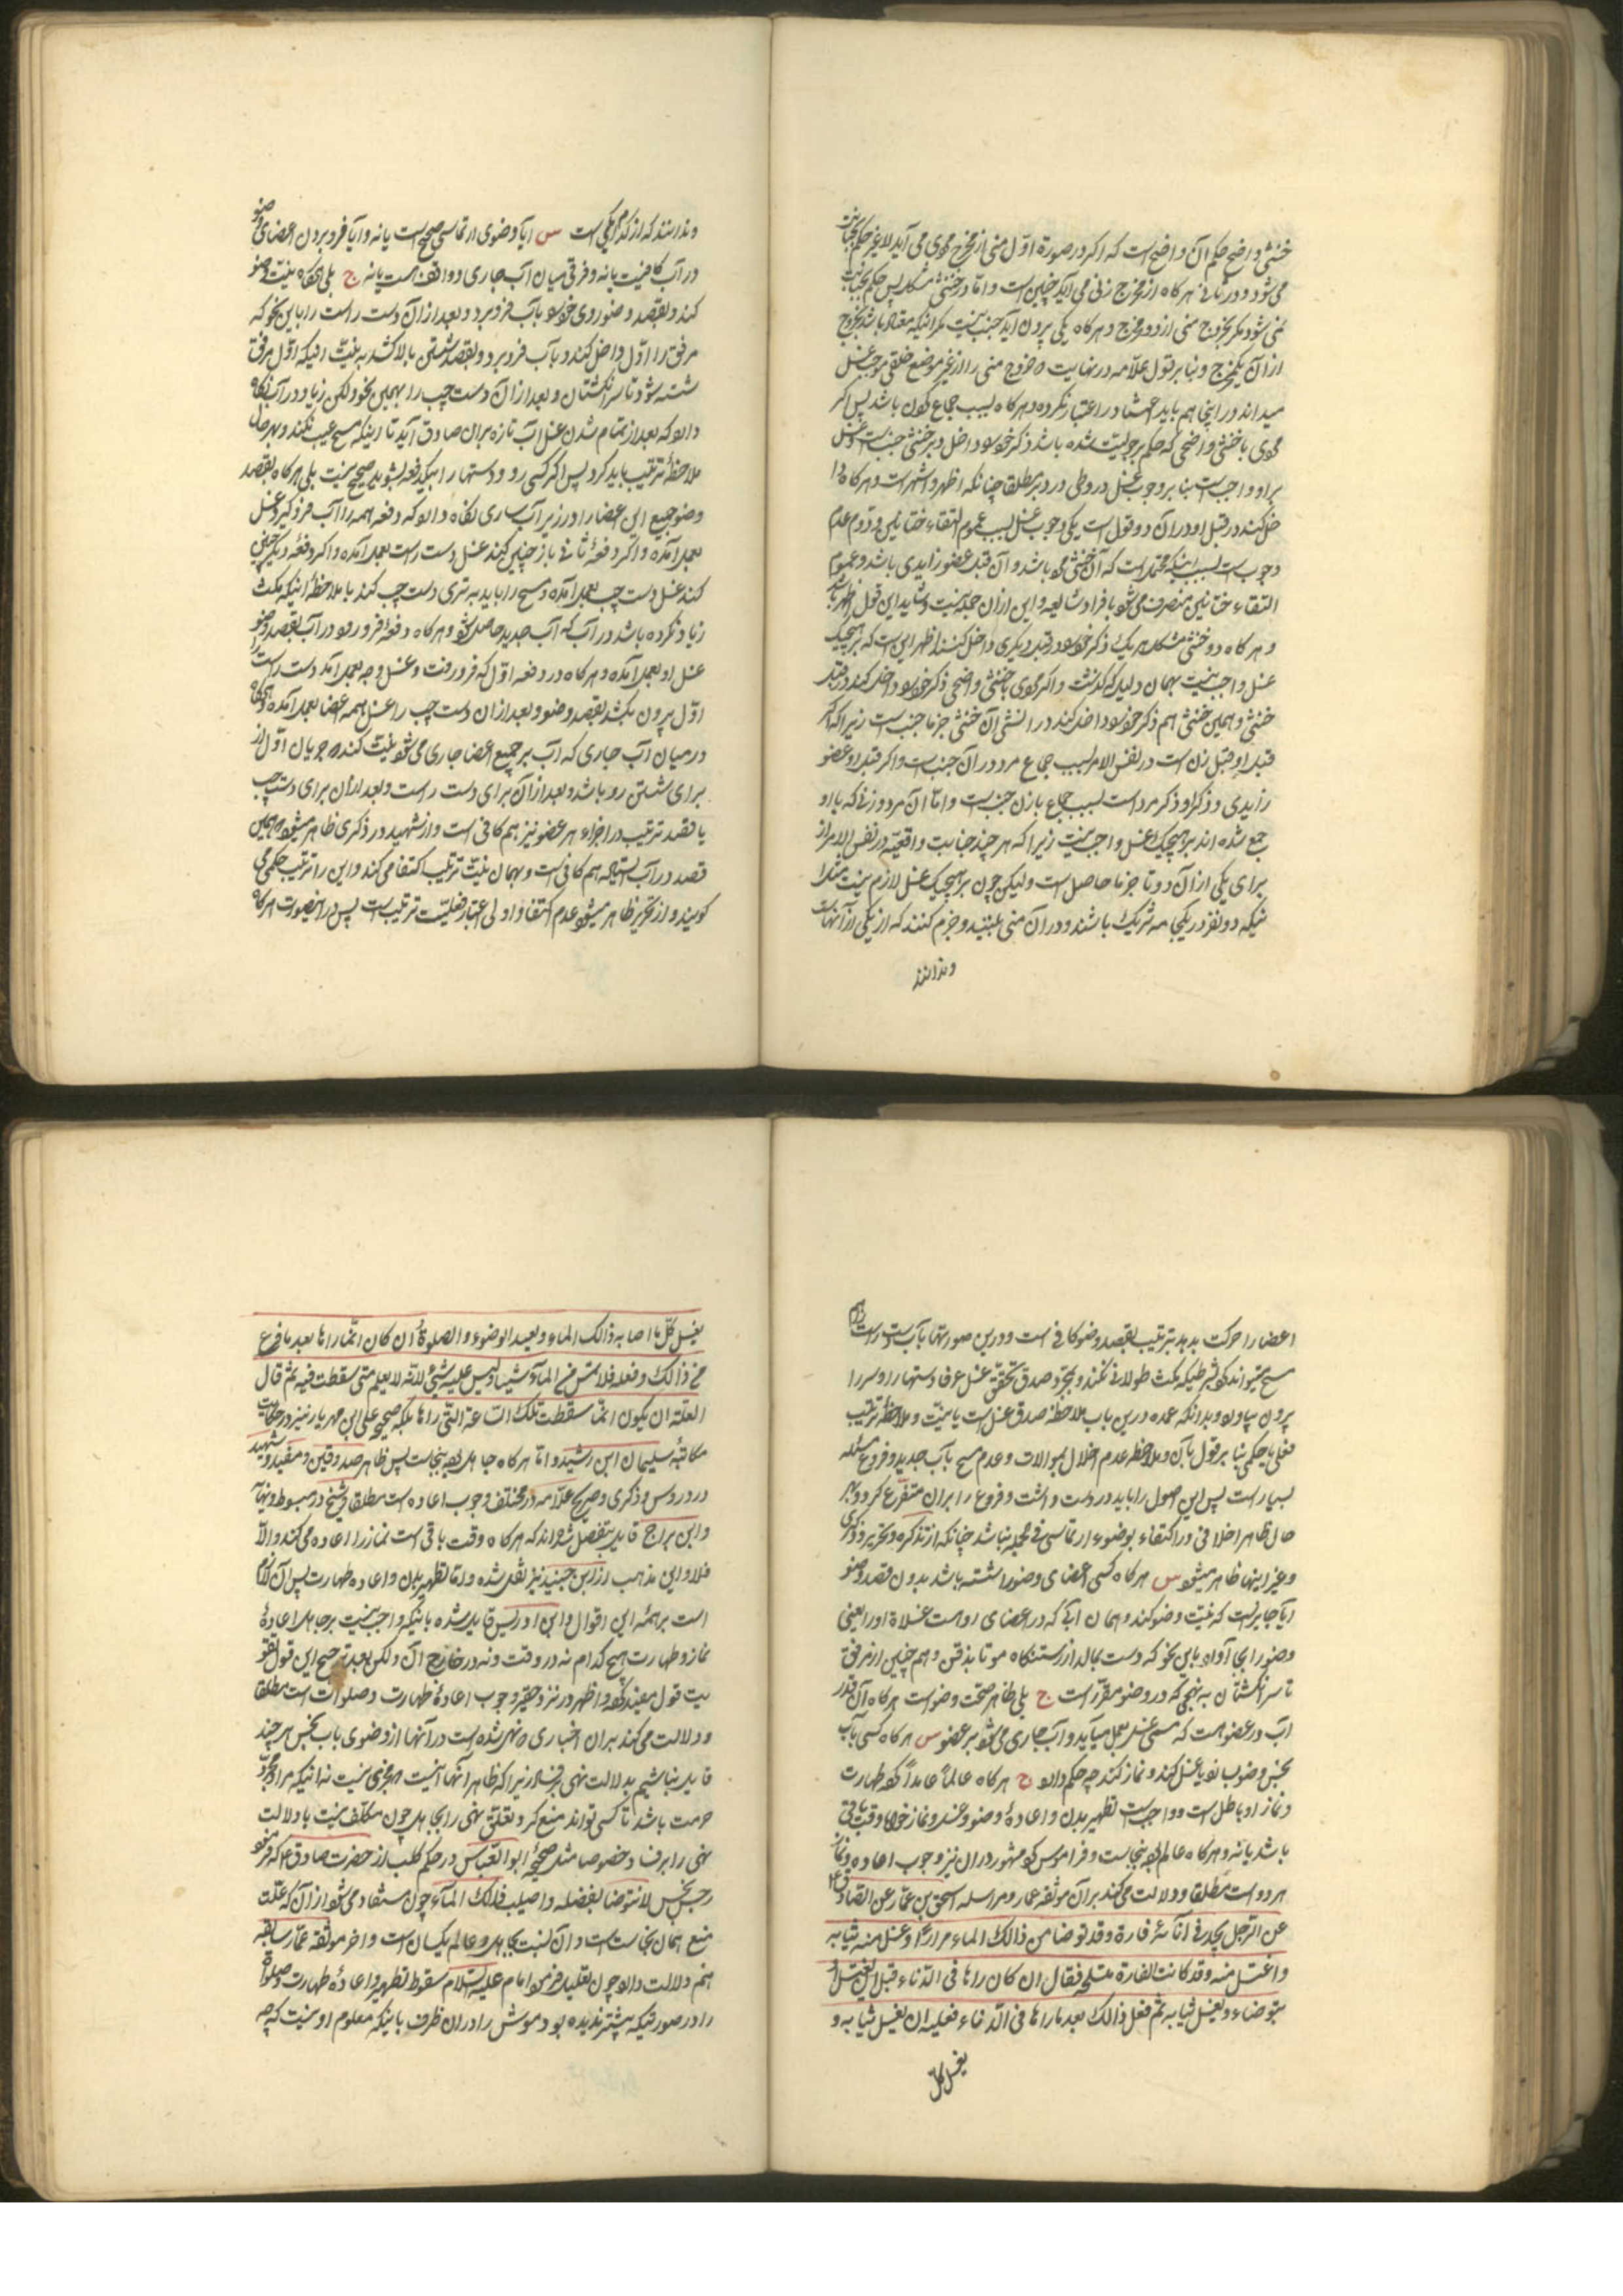 خنثی واضح حکم آن واضح است که اگر در صورة اوّل منی از مخرج مردی می آید لا غیر حکم بجنابت
می شود و در ثانی هر کاه از مخرج زنی می آید چنین است و امّا در خنثی مشکل پس حکم بجنابت
نمی شود مکر بخروج منی از دو مخرج و هر کاه یکی بیرون آید جنب نیست مکر اینکه معتاد باشد بخروج
از آن یکمخرج و بنا بر قول علّامه در نهایت که خروج منی را از غیر موضع خلقی موجب غسل
میداند در اینجا هم باید اعتیاد را اعتبار نکرد و هر کاه بسبب جماع کردن باشد پس اکر
مردی با خنثی واضحی که حکم برجولیّت شده باشد ذکر خود را داخل دبر خنثی جنب است و غسل
بر او واجب است بنا بر وجوب غسل در وطی در دبر مطلقا چنانکه اظهر و اشهر است و هر کاه دا
خل کند در قبل او در آن دو قول است یکی وجوب غسل بسبب عموم التقاء ختانین و دوّم عدم
وجوب است بسبب اینکه محتمل است که آن خنثی مرد باشد و آن قبل عضو زایدی باشد و عموم
التقاء ختانین منصرف می شود بافراد شایعه و این از آن جمله نیست و شاید این قول اظهر باشد
و هر کاه دو خنثی مشکل هر یک ذکر خود را در قبل دیکری داخل کنند اظهر این است که بر هیچیک
غسل واجب نیست بهمان دلیل که کذشت و اکر مردی با خنثی واضحی ذکر خود را داخل کند در قبل
خنثی و همین خنثی هم ذکر خود را داخل کند در انثی آن خنثی جزما جنب است زیرا که اکر
قبل او قبل زن است در نفس الامر بسبب جماع مرد در آن جنب است و اکر قبل او عضو
زایدی و ذکر او ذکر مرد است بسبب جماع با زن جنب است و امّا آن مرد و زنی که با او
جمع شده اند بر هیچیک غسل واجب نیست زیرا که هر چند جنابت واقعیّه در نفس الامر از
برای یکی از آن دو تا جزما حاصل است ولیکن چون بر هیچیک غسل لازم نیست مثل ا
ینکه دو نفر در یکجامه شریک باشند و در آن منی ببینند و جزم کنند که از یکی از آنهاست
وندانند
وندانند که از کدام یکی است س ایا وضوی ارتماسی صحیح است یا نه و ایا فرو بردن اعضای وضو
در آب کافیست یا نه و فرقی میان آب جاری و واقف هست یا نه ج بلی هر کاه نیّت وضو
کند و بقصد وضو روی خود را بآب فرو برد و بعد از آن دست راست را باین نحو که
مرفق را اوّل داخل کند و بآب فرو برد و بقصد شستن بالا کشد به نیّت اینکه اوّل مرفق
شسته شود تا سر انکشتان و بعد از آن دست چپ را بهمین نحو ولکن زیاد در آب نکاه
دارد که بعد از تمام شدن غسل آب تازه بر آن صادق آید تا اینکه مسح عیب نکند و بهر حال
ملاحظهٔ ترتیب باید کرد پس اکر کسی رو و دستها را بیکدفعه بشوید صحیح نیست بلی هر کاه بقصد
وضو جمیع این اعضا را در زیر آب ساری نکاه دارد که دفعه همه را آب فرو کیرد غسل
بعمل آمده و اکر دفعهٔ ثانی باز چنین کند غسل دست راست بعمل آمده و اکر دفعهٔ دیکر چنین
کند غسل دست چپ بعمل آمده و مسح را باید به تری دست چپ کند با ملاحظهٔ اینکه مکث
زیاد نکرده باشد در آب که آب جدید حاصل شود و هر کاه دفعهٔ فرو رود در آب بقصد وضو
غسل او بعمل آمده و هر کاه در دفعه اوّل که فرو رفت و غسل وجه بعمل آمد دست راست را
اوّل بیرون بکشد بقصد وضو و بعد از آن دست چپ را غسل همه اعضا بعمل آمده و هر کاه
در میان آب جاری که آب بر جمیع اعضا جاری می شود نیّت کند که جریان اوّل از
برای شستن رو باشد و بعد از آن برای دست راست و بعد از آن برای دست چپ
با قصد ترتیب در اجزاء هر عضو نیز هم کافی است و از شهید در ذکری ظاهر میشود که همین
قصد در آب ایستاده هم کافی است و بهمان نیّت ترتیب اکتفا می کند و این را ترتیب حکمی می
کویند و از تحریر ظاهر میشود عدم اکتفا و اولی اعتبار فعلیّت ترتیب است پس در اینصورت هر کاه
اعضا را حرکت بدهد بترتیب بقصد وضو کافی است و در این صورتها بآب دست راست هم
مسح میتواند کرد بشرطیکه مکث طولانی نکند و بمجرّد صدق تحقّق غسل عرفا دستها را و سر را
بیرون بیاورد و بدانکه عمده در این باب ملاحظه صدق غسل است با نیّت و ملاحظه ترتیب
فعلی یا حکمی بنا بر قول بآن و ملاحظه عدم اخلال بموالات و عدم مسح بآب جدید و فروع مسئله
بسیار است پس این اصول را باید در دست داشت و فروع را بر آن متفرّع کرد و بهر
حال ظاهر اخلافی در اکتفاء بوضوء ارتماسی فی الجمله نباشد چنانکه از تذکره و تحریر و ذکری
و غیر اینها ظاهر میشود س هر کاه کسی اعضای وضو را شسته باشد بدون قصد وضو
ایا جایز است که نیّت وضو کند و همان آبی که در اعضای اوست غسلاة او را یعنی
وضو را بجا آورد باین نحو که دست بمالد از رستنکاه مو تا بذقن و هم چنین از مرفق
تا سر انکشتان به نهجی که در وضو مقرّر است ج بلی ظاهر صحّت وضو است هر کاه آن قدر
آب در عضو هست که مسمّی غسل بعمل میآید و آب جاری می شود بر عضو س هر کاه کسی بآب
نجس وضو بسازد یا غسل کند و نماز کند چه حکم دارد ج هر کاه عالماً عامداً کرده طهارت
و نماز او باطل است و واجب است تطهیر بدن و اعادهٔ وضو و غسل و نماز خواه وقت باقی
باشد یا نه و هر کاه عالم بوده بنجاست و فراموش کرده مشهور در آن نیز وجوب اعاده وضو و نماز
هر دو است مطلقا و دلالت می کند بر آن موثّقه عمار و مرسله اسحق بن عمّار عن الصّادق ع
عن الرّجل یجد فی انائه فارة و قد توضا من ذالک الماء مرارا و غسل منه ثیابه
و اغتسل منه و قد کانت الفارة منسلخة فقال ان کان راها فی الاناء قبل ان یغتسل او
یتوضاء و یغسل ثیابه ثم فعل ذالک بعد ما راها فی الاناء فعلیه ان یغسل ثیابه و
یغسل کلّ
یغسل کلّ ما اصابه ذالک الماء و یعید الوضوء و الصلوة و ان کان انّما راها بعد ما فرغ
من ذالک و فعله فلا تمس من الماء شیئا و لیس علیه شیئ لانّه لا یعلم متی سقطت فیه ثم قال
لعلّه ان یکون انّما سقطت تلک السّاعة الّتی راها بلکه صحیحه علی ابن مهزیار نیز در حکایت
مکاتبهٔ سلیمان ابن رشید و امّا هر کاه جاهل بوده بنجاست پس ظاهر صدوقین و مفید و شهید
در دروس و ذکری و صریح علّامه در مختلف وجوب اعاده است مطلقا و شیخ در مبسوط و نهایه
و ابن براج قایل بتفصیل شده اند که هر کاه وقت باقی است نماز را اعاده می کند و الّا
فلا و این مذهب از ابن جنید نیز نقل شده و امّا تطهیر بدن و اعاده طهارت پس آن لازم
است بر همهٔ این اقوال و ابن ادریس قایل شده باینکه واجب نیست بر جاهل اعادهٔ
نماز و طهارت هیچ کدام نه در وقت و نه در خارج آن ولکن بعد ترجیح این قول تقو
یت قول مفید کرده و اظهر در نزد حقیر وجوب اعادهٔ طهارت و صلوات است مطلقا
و دلالت می کند بر آن اخباری که نهی شده است در آنها از وضوی بآب نجس هر چند
قایل نباشیم بدلالت نهی بر فساد زیرا که ظاهر آنها اینست که مجزی نیست نه اینکه مراد مجرّد
حرمت باشد تا کسی تواند منع کرد و تعلّق نهی را بجاهل چون مکلّف نیست یا دلالت
نهی را بر فساد خصوصا مثل صحیحهٔ ابو العبّاس در حکم کلب از حضرت صادق ع که فرمود
رجس نجس لا تتوضا بفضله و اصبب ذلک الماء چون مستفاد می شود از آن که علّت
منع همان نجاست است و آن نسبت بجاهل و عالم یکسان است و اخر موثّقه عمّار سابقه
هم دلالت دارد چون تعلیل فرمود امام علیه السّلام سقوط تطهیر و اعادهٔ طهارت و صلوة
را در صورتیکه پیشتر ندیده بود موش را در آن ظرف باینکه معلوم او نیست که چه